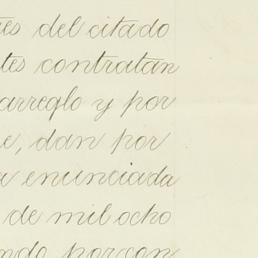 es del citado
tes contratan
arreglo y por
e, dan por
a enunciada
de mil ocho
ndo por con